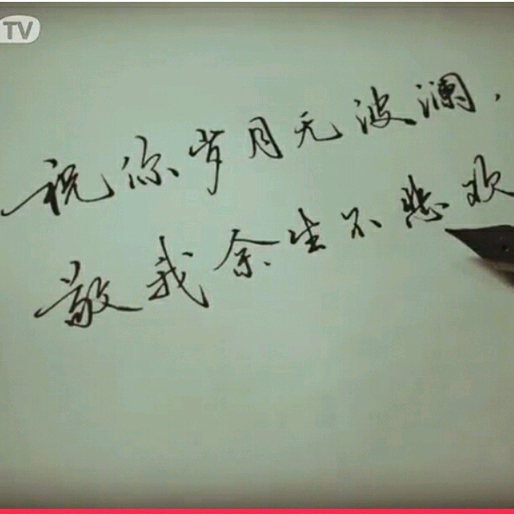 TV
祝你岁月无波澜，
敬我余生不悲欢